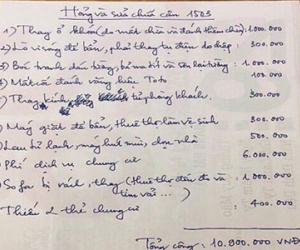 Hỏng và sửa chữa căn 1503
1) Thay ổ khóa (do mất chìa và đánh thêm chìa): 1.000.000
2) Lò vi sóng để bẩn, phải thay tụ điện do chập: 300.000
3) Bôi tranh dán tường, bẻ và tô lại tường: 1.000.000
4) Mất cái đánh vàng hiệu Toto 100.000
Thay kính tủ phòng khách. 300.000
) Máy giặt để bẩn, thuê thợ làm vệ sinh 300.000
) Lau tủ lạnh, máy hút mùi, dọn nhà 500.000
) Phí dịch vụ chung cư 6.000.000
) Sofa bị rách, thay (thuê thợ đến đo và tìm vải ...) 1.000.000
Thiếu 2 thẻ chung cư 400.000
Tổng cộng: 10.900.000 VNĐ